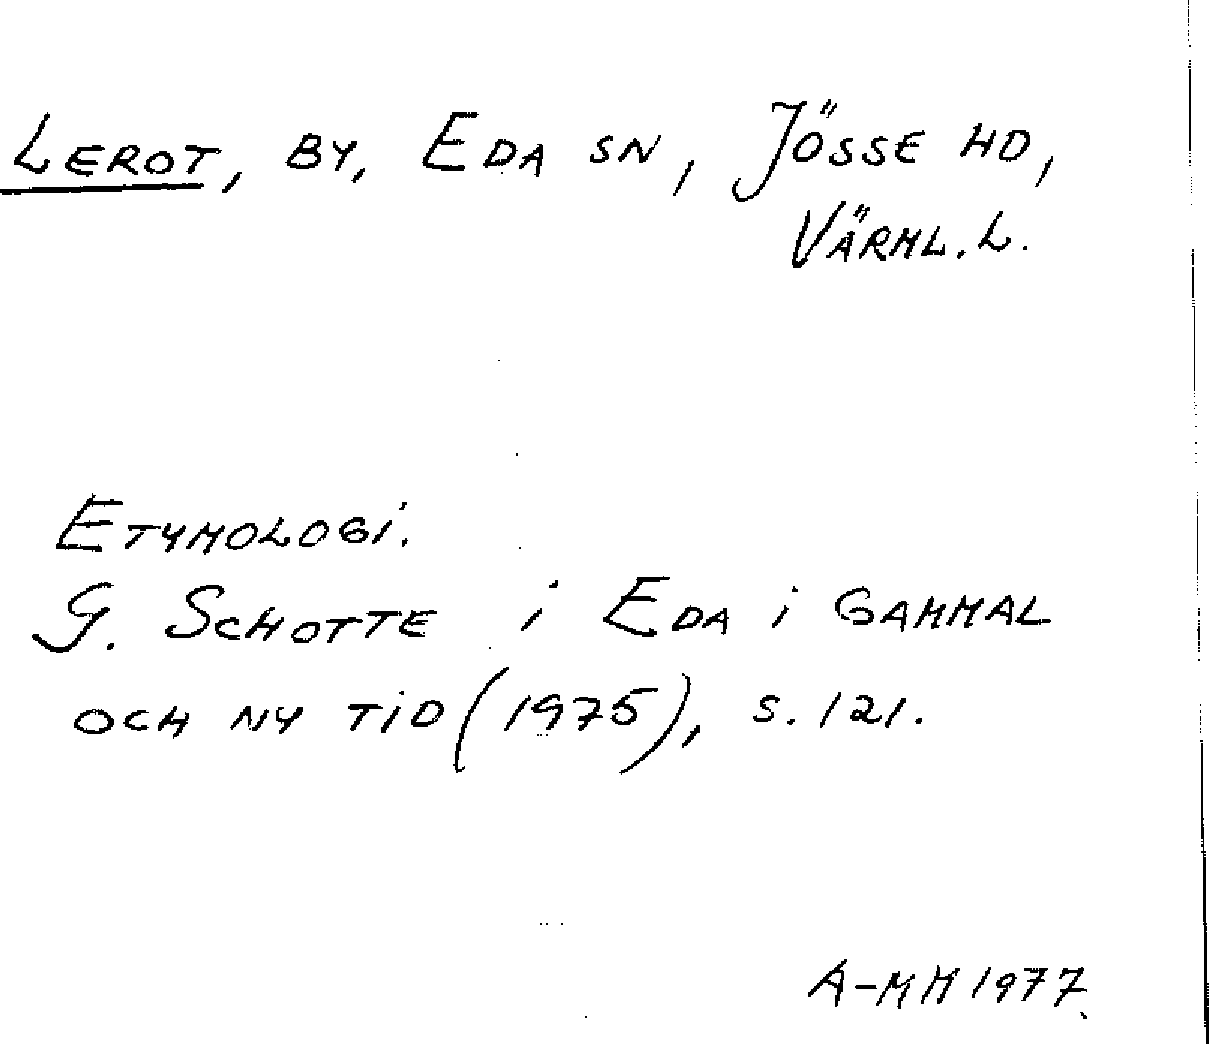 LEROT, BY, EDA SN, JÖSSE HD,
VÄRML. L.
ETYMOLOGI.
G. SCHOTTE i EDA i GAMMAL
OCH NY TID (1975), S. 121.
A-MM 1977.